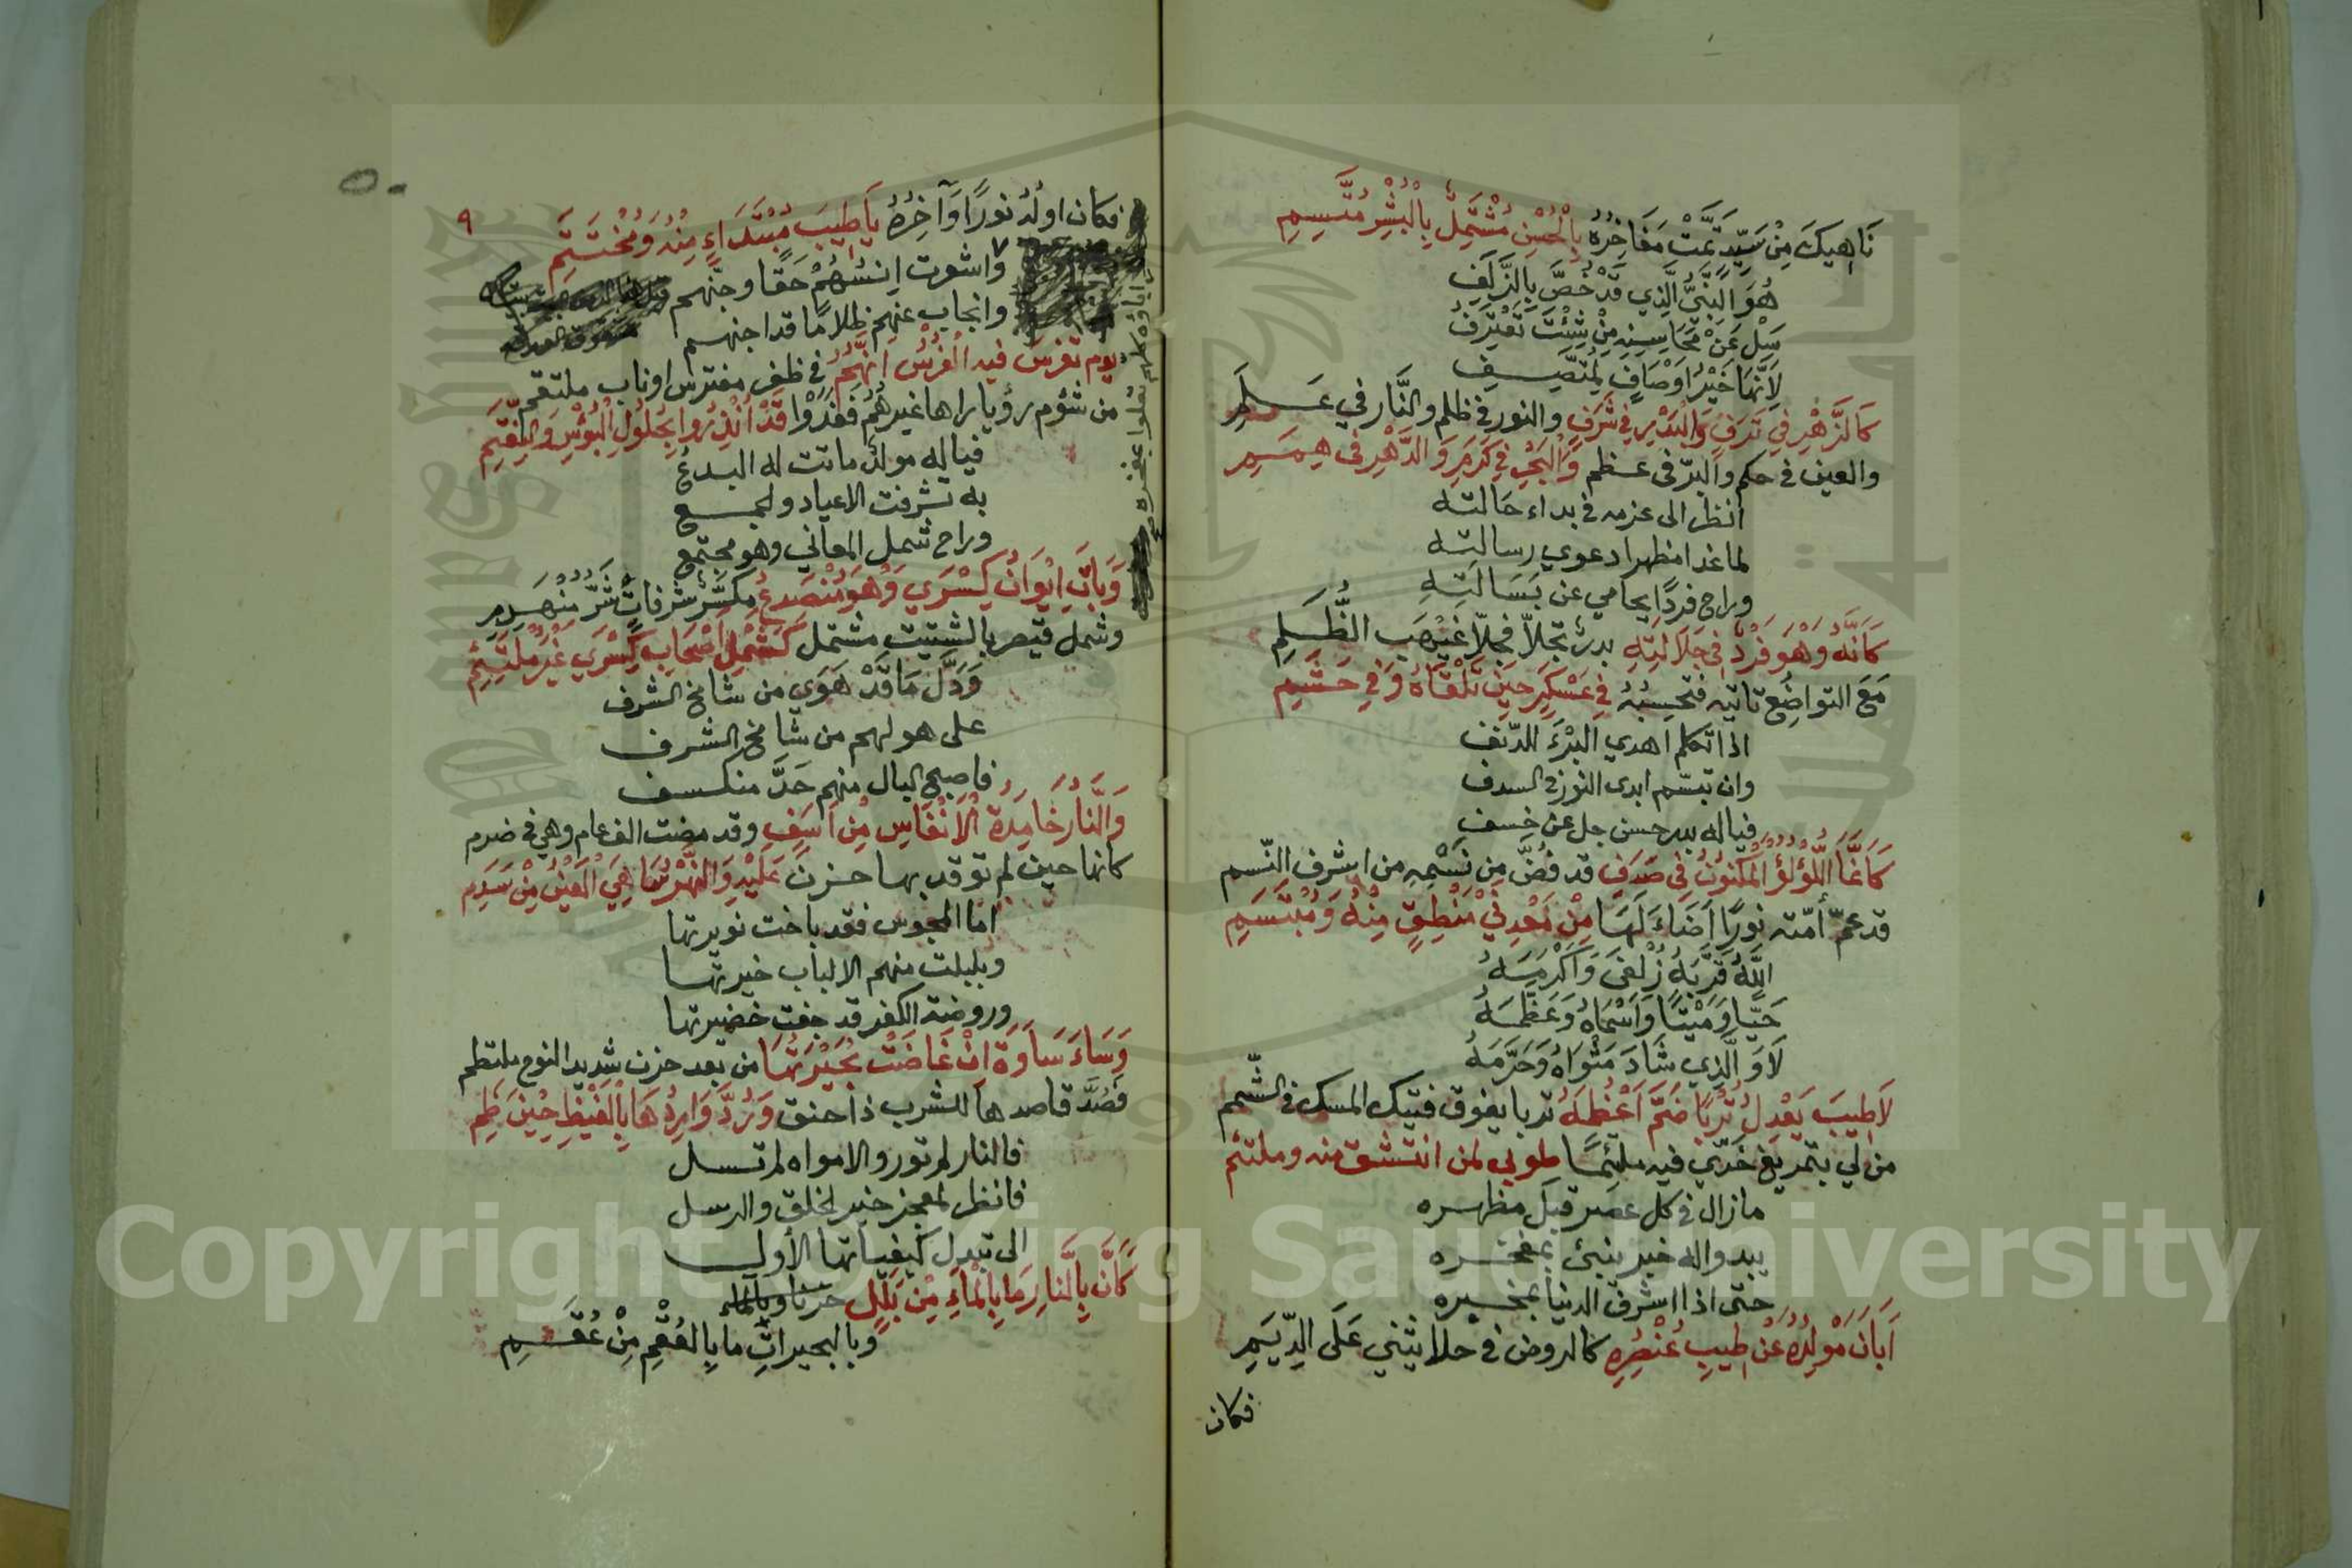 نَاهِيكَ مِنْ سَيِّدٍ تَمَّتْ مَفَاخِرُهُ بِالْحُسْنِ مُشْتَمِلٌ بِالْبُشْرِ مُتَّسِمِ
هُوَ النَّبِيُّ الَّذِي قَدْ خُصَّ بِالزُّلَفِ
سَلْ عَنْ مَحَاسِنِهِ مِنْ شِئْتَ تَعْتَرِفُ
لِأَنَّهَا خَيْرُ اَوْصَافٍ لِمُتَّصِفِ
كَالزَّهْرِ فِي تَرَفٍ وَالْبَدْرِ فِي شَرَفٍ والنور في ظلم والنَّار في عَلَمِ
والعين في حكم والبرّ في عظم وَالْبَحْرِ فِي كَرَمٍ وَالدَّهْرِ فِي هِمَمِ
انظر الى عزمه في بداء حَالته
لما غدا مظهرا دعوي رسالته
وراح فردًا يحامي عن بَسَالَتِهِ
كَأَنَّهُ وَهُوَ فَرْدٌ فِي جَلَالَتِهِ بدرٌ تجلّا فجلّا غَيْهَب الظُّلَمِ
مَعَ التواضُعِ تاتيه فتحسِبُهُ فِي عَسْكَرٍ حِينَ تَلْقَاهُ وَفِي حَشَمِ
اذا تكلم اهدي البُرْءَ للدّنف
وان تبسّم ابدى النور في السدف
فياله بدر حسن جل عن خسف
كَأَنَّمَا اللُّؤْلُؤُ الْمَكْنُونُ فِي صَدَفٍ قد فُضَّ مِن نَسْمِهِ من اشرف النّسم
قد عمّ أمّته نورًا اَضَاءَ لَهَا مِنْ مَعْدِنَيْ مَنْطِقٍ مِنْهُ وَمُبْتَسَمِ
اللَّهُ قَرَّبَهُ زُلْفَى وَاَكْرَمَهُ
حَيًّا وَمَيْتًا وَاَسْمَاهُ وَعَظَّمَهُ
لَاوَ الَّذِي شَادَ مَثْوَاهُ وَحَرَّمَهُ
لَا طِيبَ يَعْدِلُ تُرْبًا ضَمَّ اَعْظُمَهُ تربا يفوق فتيك المسك في الشّمم
من لي بتمريغ خَدّي فيه ملتئمًا طوبي لمن انتشق منه وملتئم
مازال في كل عصر قبل مظهره
يبدو اله خير ينبئ بمفخره
حتى اذا اشرق الدنيا بمخبره
اَبَانَ مَوْلِدُهُ عَنْ طِيبِ عُنْصُرِهِ كالروض في حلا يثني عَلَى الدِّيَمِ
فكان
٩
فكان اوله نورًا وَآخِرُهُ يَا طِيبَ مُبْتَدَاءٍ مِنْهُ وَمُخْتَتَمِ
اباؤه كلهم تعلوا بمفخره
واشعرت اِنسُهُمْ حَقًّا وجنّهم
وانجاب عنهم ظلامًا قد اجنهم
يوم تفرس فيه الْفُرْسُ انَّهُمُ في ظفر مفترس اوناب ملتقم
من شؤم رؤيا راها غيرهُمْ فَغَدَوْا قَدْ اُنْذِرُوا بِحُلُولِ الْبُؤْسِ وَالنِّقَمِ
فياله مولدٌ ماتت له البدعُ
به تشرفت الاعياد والجمع
وراح شمل المعاني وهو مجتمع
وَبَاتَ اِيْوَانُ كِسْرَي وَهُوَ مُنْصَدِعُ مكسَّر شرفاتٍ شَرَّ مُنْهَدِمِ
وشمل قيصر بالشتيت مشتمل كَشَمْلِ اَصْحَابِ كِسْرَي غَيْرَ مُلْتَئِمِ
وَدَّلَ مَا قَدْ هَوَي من شامخ الشرف
على هولهم من شامخ الشرف
فاصبح البال منهم جَدَّ منكسف
وَالنَّارُ خَامِدَةُ الْاَنْفَاسِ مِنْ اَسَفٍ وقد مضت الف عام وهي في ضرم
كانها حين لم توقد بها حزن عَلَيْهِ وَالنَّهْرُ سَاهِيَ الْعَيْنِ مِنْ سَدَمِ
اما المجوس فقد باخت نويرتها
وبلبلت منهم الالباب خيرتها
وروضة الكفر قد جفت خضيرتها
وَسَاءَ سَاوَةَ اَنْ غَاضَتْ بُحَيْرَتُهَا من بعد حزن شديد النوع ملتطم
فَصُدَّ قاصدها للشرب ذا حنق وَرُدَّ وَارِدُهَا بِالْغَيْظِ حِيْنَ ظَمِ
فالنار لم تور والامواه لم تسل
فانظر لمعجز خير الخلق والرسل
الى تبدل كيفياتها الأول
كَأَنَّ بِالنَّارِ مَا بِالْمَاءِ مِنْ بَلَلٍ حزنا وبالماء
وبالبحيراتِ ما بِالعُقْمِ مِنْ عُقَمِ